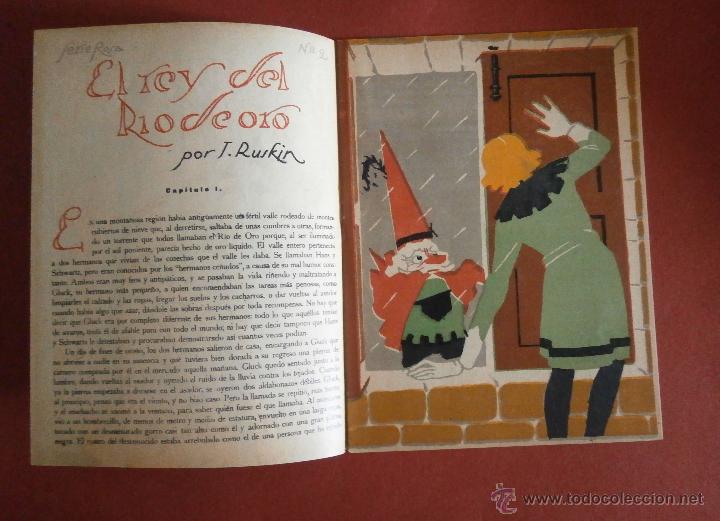 Serie Rosa Nº 2
El rey del
Rio de oro
por J. Ruskin
Capítulo I.
En una montañosa región había antiguamente un fértil valle rodeado de montes
cubiertos de nieve que, al derretirse, saltaba de unas cumbres a otras, forman-
do un torrente que todos llamaban el Río de Oro porque, al ser iluminado
por el sol poniente, parecía hecho de oro líquido. El valle entero pertenecía
a dos hermanos que vivían de las cosechas que el valle les daba. Se llamaban Hans y
Schwartz, pero eran conocidos por los "hermanos ceñudos", a causa de su mal humor cons-
tante. Ambos eran muy feos y antipáticos, y se pasaban la vida riñendo y maltratando a
Gluck, su hermano más pequeño, a quien encomendaban las tareas más penosas, como
limpiarles el calzado y las ropas, fregar los suelos y los cacharros, o dar vueltas al asador
cuando había algo que asar, dándole las sobras después por toda recompensa. No hay que
decir que Gluck era por completo diferente de sus hermanos: todo lo que aquéllos tenían
de avaros, tenía él de afable para con todo el mundo; ni hay que decir tampoco que Hans
y Schwartz le detestaban y procuraban demostrárselo así cuantas veces podían.
Un día de fines de otoño, los dos hermanos salieron de casa, encargando a Gluck que
no abriese a nadie en su ausencia y que tuviera bien dorada a su regreso una pierna de
carnero comprada por él en el mercado aquella mañana. Gluck quedó sentado junto a la
lumbre, dando vueltas al asador y oyendo el ruido de la lluvia contra los tejados. Cuando
ya la pierna empezaba a dorarse en el asador, se oyeron dos aldabonazos débiles. Gluck,
al principio, pensó que era el viento, y no hizo caso. Pero la llamada se repitió, más fuerte,
y el muchacho se asomó a la ventana, para saber quién fuese el que llamaba. Al asomarse
vio a un hombrecillo, de menos de metro y medio de estatura, envuelto en una larga capa,
tocado con un desmesurado gorro casi tan alto como él y adornado con una gran pluma
negra. El rostro del desconocido estaba arrebolado como el de una persona que ha estado
www.todocoleccion.net